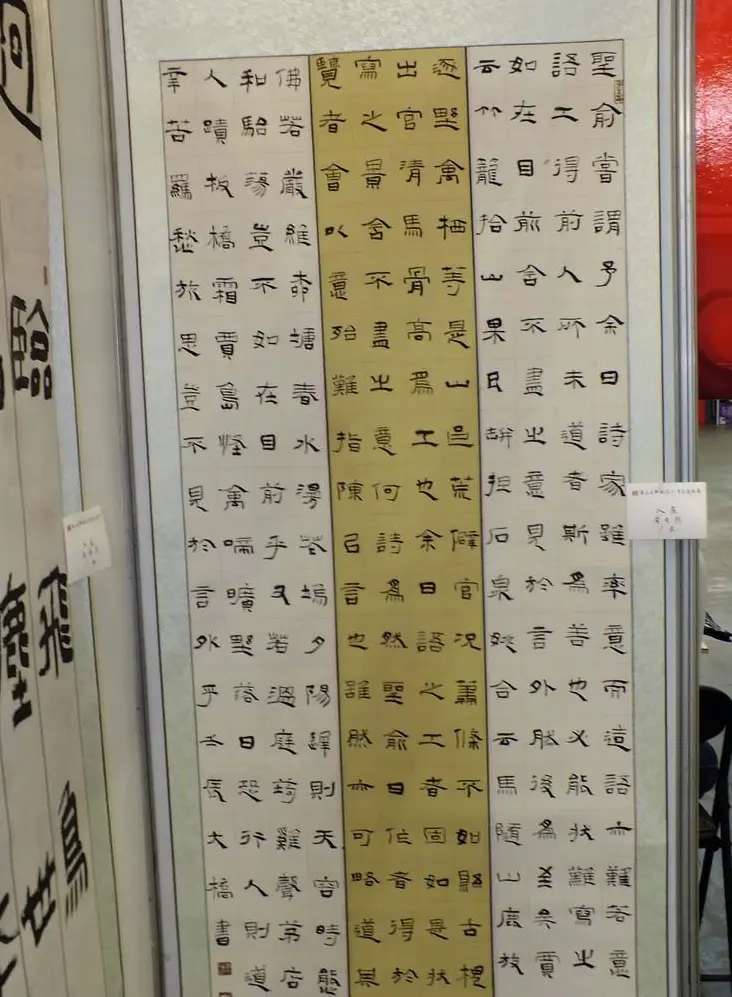 聖俞嘗謂予余曰詩家雖率意而造語亦難若意
語工得前人所未道者斯為善也必能狀難寫之
如在目前含不盡之意見於言外然後為至矣賈
云竹籠拾山果瓦缾担石泉姚合云馬隨山鹿放
逐野禽栖等是山邑荒僻官況蕭條不如縣古槐
出官清馬骨高為工也余曰語之工者固如是狀
寫之景含不盡之意何詩為然聖俞曰作者得於
覽者會以意殆難指陳以言也雖然亦可略道其
佛若嚴維柳塘春水漫花塢夕陽遲則天容時態
和駘蕩豈不如在目前乎又若溫庭筠雞聲茅店
人蹟板橋霜賈島怪禽啼曠野落日恐行人則道
辛苦羈愁旅思豈不見於言外乎壬辰大橋書